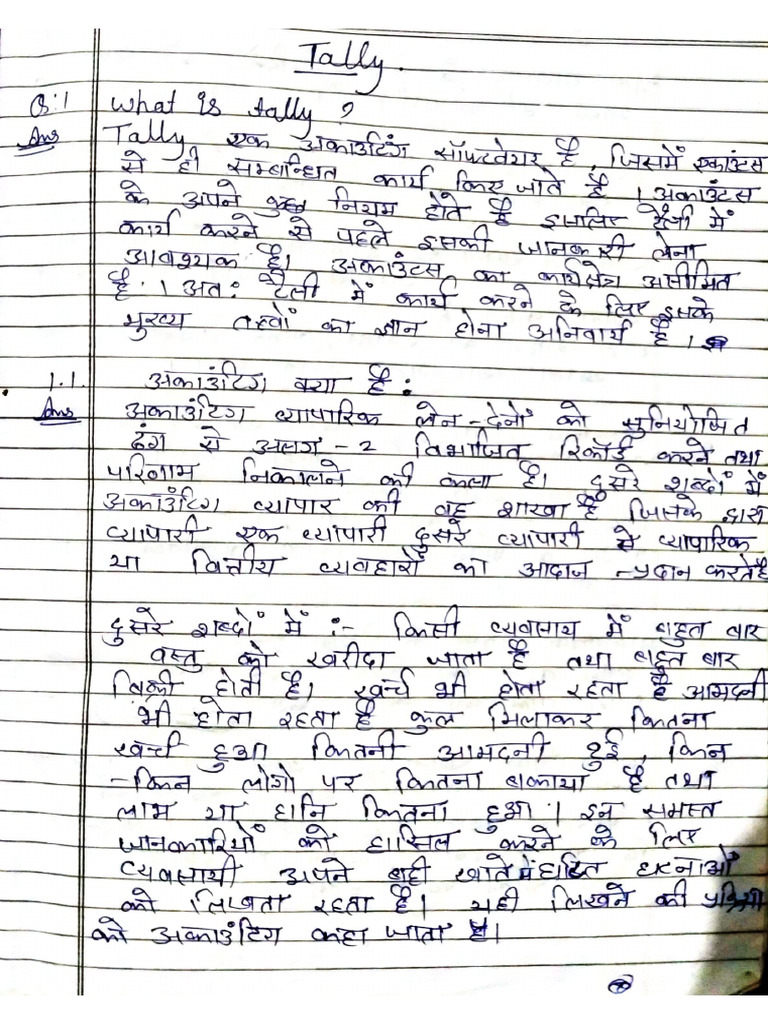 Tally.
Q:1 What is tally ?
Ans Tally एक अकाउटिंग सॉफ्टवेयर है, जिसमें एकाउंटस
से ही सम्बन्धित कार्य किए जाते है । अकाउंटस
के अपने कुछ नियम होते है इसलिए टैली में
कार्य करने से पहले इसकी जानकारी लेना
आवश्यक है। अकाउंटस का कार्यक्षेत्र असीमित
है । अतः टैली में कार्य करने के लिए इसके
मुख्य तत्वों का ज्ञान होना अनिवार्य है ।
1.1. अकाउंटिग क्या है :
Ans अकाउंटिग व्यापारिक लेन-देनों को सुनियोजित
ढंग से अलग-2 विभाजित रिकॉर्ड करने तथा
परिणाम निकालने की कला है। दुसरे शब्दों में
अकाउंटिग व्यापार की वह शाखा है जिसके द्वारा
व्यापारी एक व्यापारी दुसरे व्यापारी से व्यापारिक
या वित्तीय व्यवहारों का आदाज -प्रदान करते है
दुसरे शब्दों में :- किसी व्यवसाय में बहुत बार
वस्तु को खरीदा जाता है तथा बहुत बार
बिक्री होती है। खर्च भी होता रहता है आमदनी
भी होता रहता है कुल मिलाकर कितना
खर्च हुआ कितनी आमदनी हुई, किन
-किन लोगो पर कितना बकाया है तथा
लाभ या हानि कितना हुआ । इन समस्त
जानकारियों को हासिल करने के लिए
व्यवसायी अपने बही खाते में घटित घटनाओं
को लिखता रहता है। यही लिखने की प्रक्रिया
को अकाउंटिग कहा जाता है।